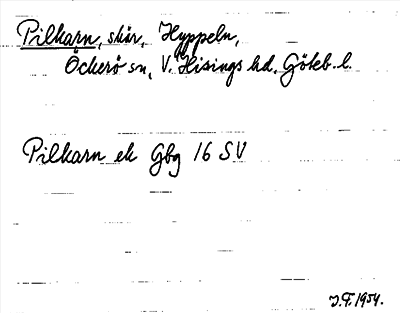 Pilkarn, skär, Hyppeln,
Öckerö sn, V. Hisings hd, Göteb. l.
Pilkarn ek Gbg 16 SV
J.F. 1954.